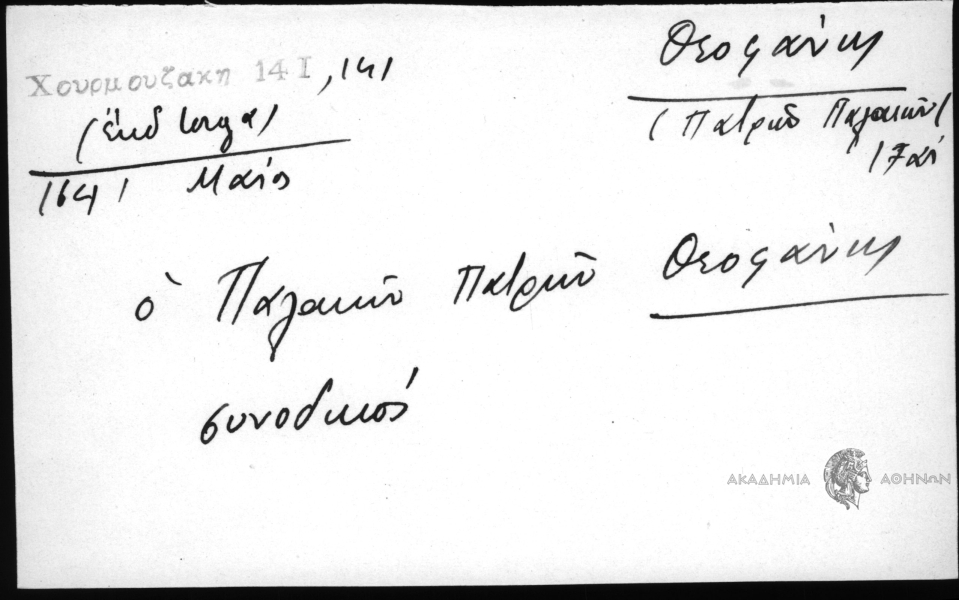 Χουρμουζακη 14 I, 141
(ἔκδ Iorga)
1641 Μαίος
Θεοφάνης
(Πατρῶν Παλαιῶν)
17 αἰ
ὁ Παλαιῶν Πατρῶν Θεοφάνης
συνοδικός
ΑΚΑΔΗΜΙΑ ΑΘΗΝΩΝ